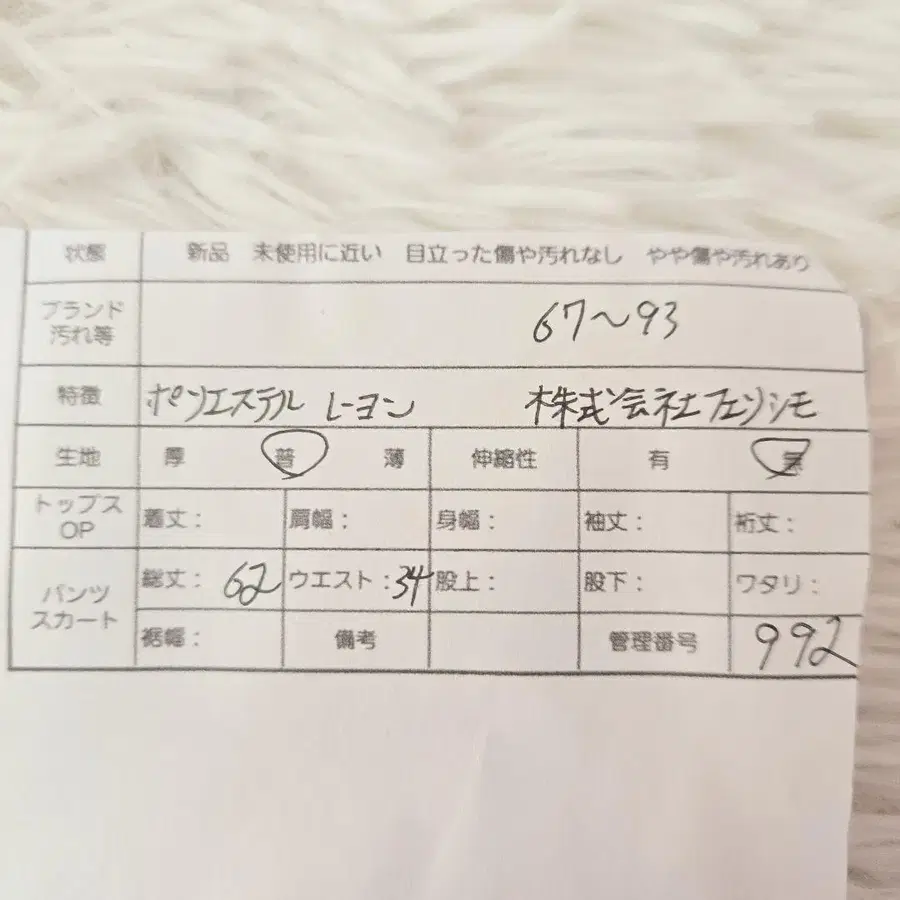 状態 新品 未使用に近い 目立った傷や汚れなし やや傷や汚れあり
ブランド 67〜93
汚れ等
特徴 ポリエステル レーヨン 株式会社フェリシモ
生地 厚 普 薄 伸縮性 有 無
トップス 着丈: 肩幅: 身幅: 袖丈: 裄丈:
OP
パンツ 総丈: 62 ウエスト: 34 股上: 股下: ワタリ:
スカート
裾幅: 備考 管理番号 992